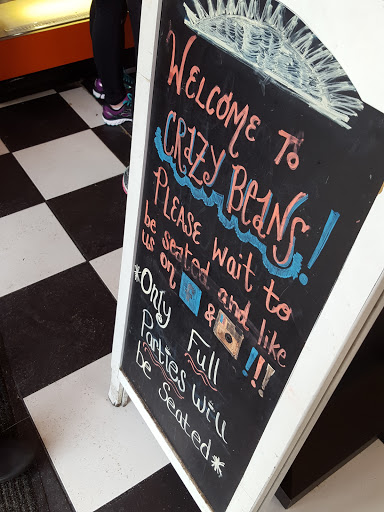 WELCOME TO
CRAZY BEANS!
PLEASE wait to
be seated and like
us on f & !!!
*Only Full
Parties Will
be Seated*